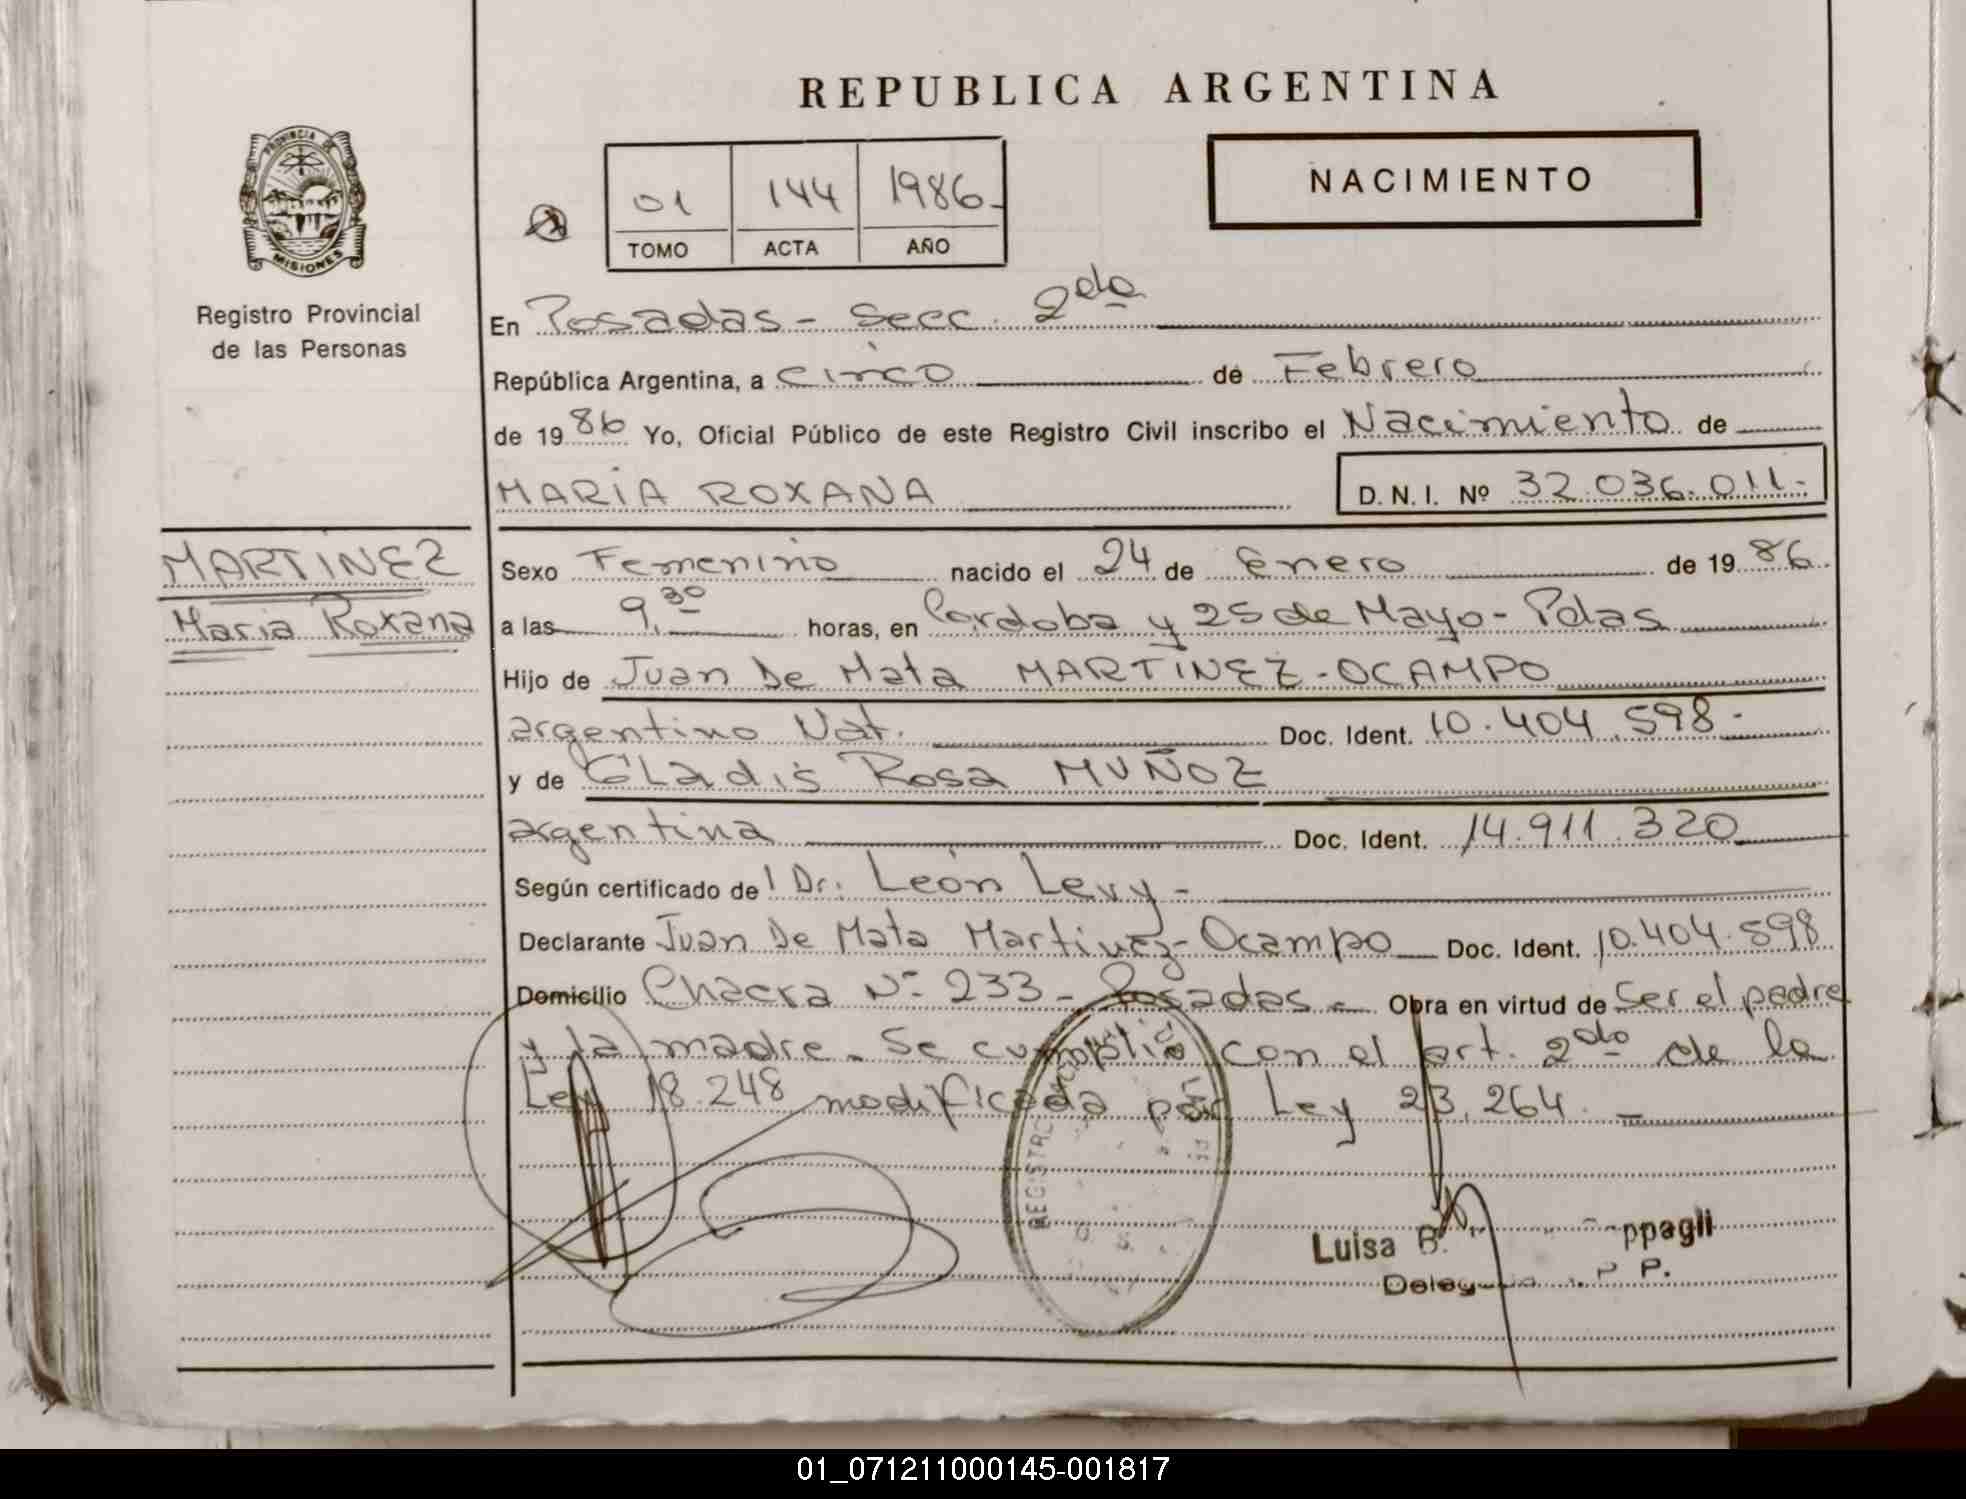 REPUBLICA ARGENTINA
PROVINCIA DE
MISIONES
Registro Provincial
de las Personas
01 144 1986-
TOMO ACTA AÑO
NACIMIENTO
En Posadas - Secc. 2da
República Argentina, a cinco de Febrero
de 1986 Yo, Oficial Público de este Registro Civil inscribo el Nacimiento de
MARIA ROXANA D. N. I. Nº 32.036.011.-
MARTINEZ
Maria Roxana
Sexo Femenino nacido el 24 de Enero de 1986.
a las 9,30 horas, en Córdoba y 25 de Mayo - Pdas
Hijo de Juan De Mata MARTINEZ-OCAMPO
argentino Nat. Doc. Ident. 10.404.598.-
y de GLadis Rosa MUÑOZ
argentina Doc. Ident. 14.911.320
Según certificado del Dr. León Levy -
Declarante Juan De Mata Martinez-Ocampo Doc. Ident. 10.404.598
Domicilio Chacra Nº 233 - Posadas - Obra en virtud de ser el padre
y la madre. Se cumplió con el art. 2do de la
Ley 18.248 modificada por Ley 23.264. -
REGISTRO
Luisa B. ppagli
P.
01_071211000145-001817